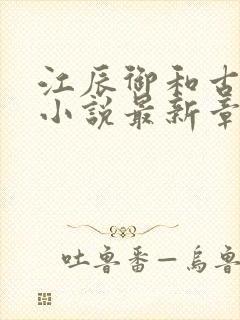 江辰御和古
小说最新章
吐鲁番—乌鲁